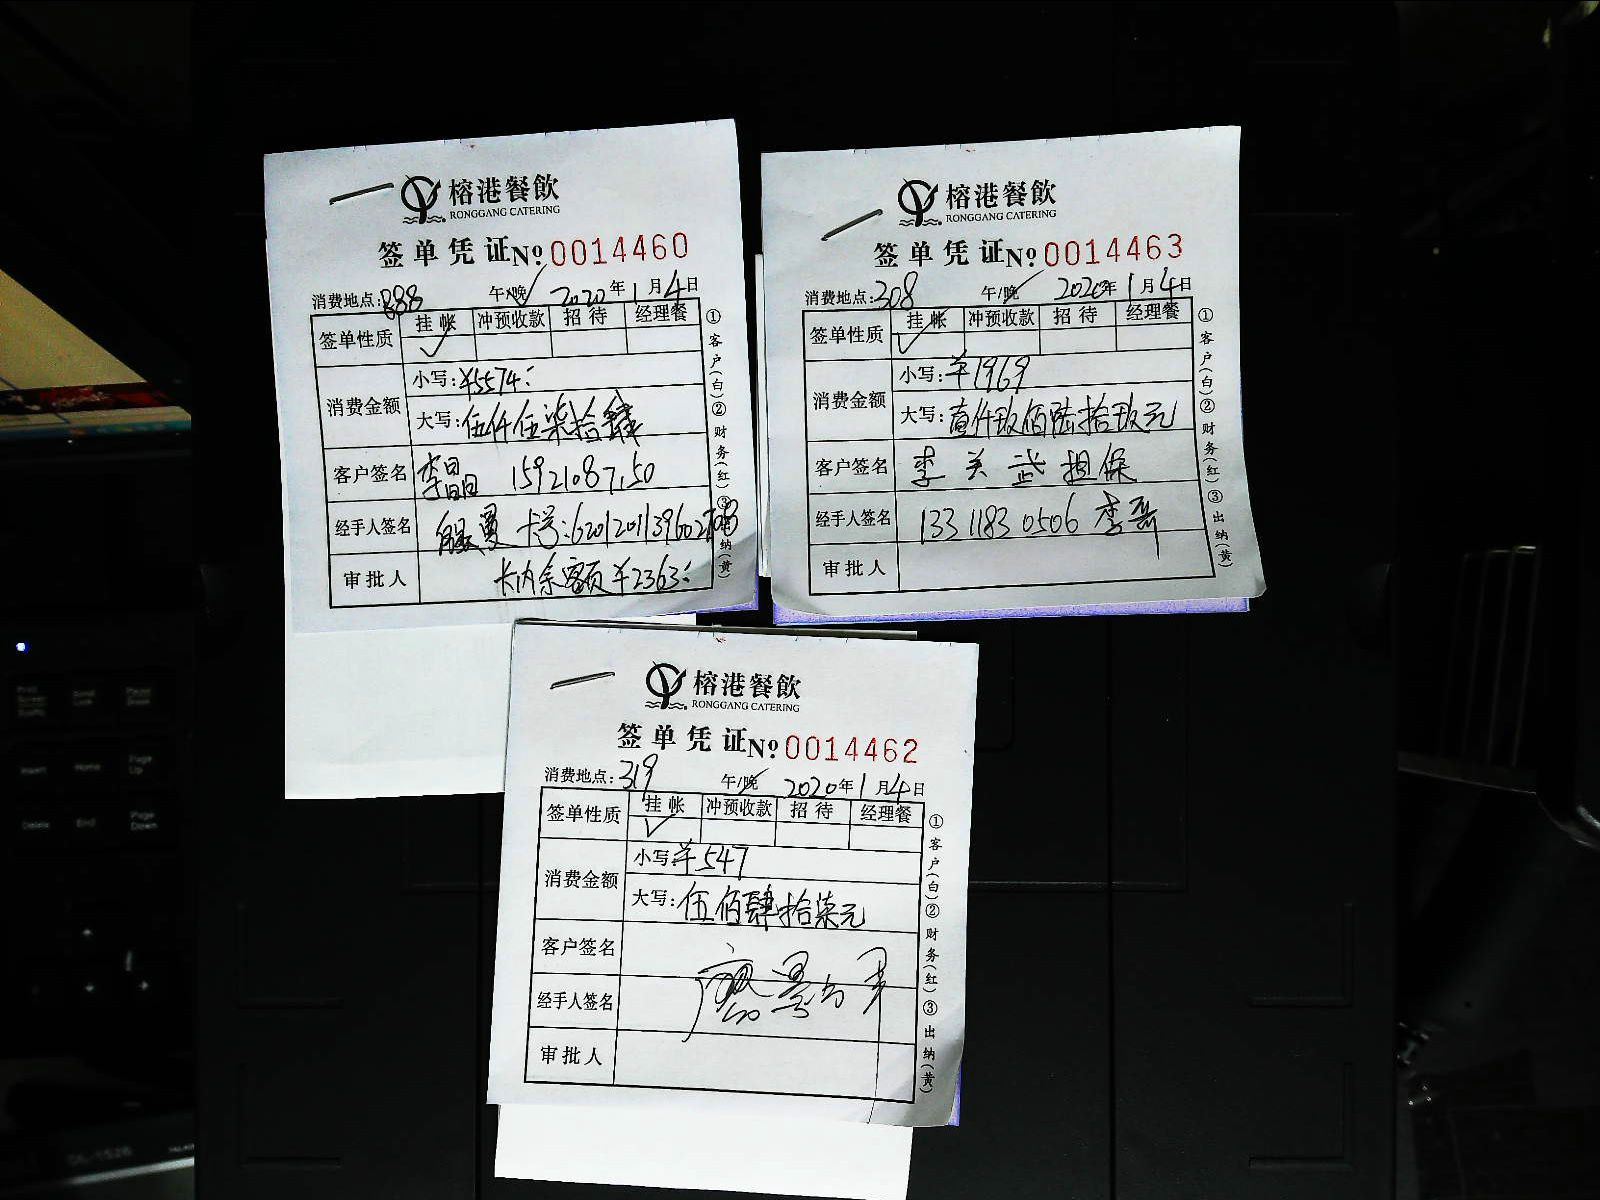 榕港餐飲
RONGGANG CATERING
签单凭证 № 0014460
消费地点:888 午/晚 2020年1月4日
签单性质 挂帐 冲预收款 招待 经理餐
✓
消费金额
小写:¥5574:
大写:伍仟伍柒拾肆
客户签名 李晶 15921087,50
经手人签名 卡号:6201201139602708
审批人 卡内余额¥2363:
①客户(白)②财务(红)③出纳(黄)
榕港餐飲
RONGGANG CATERING
签单凭证 № 0014463
消费地点:308 午/晚 2020年1月4日
签单性质 挂帐 冲预收款 招待 经理餐
✓
消费金额
小写:¥1969
大写:壹仟玖佰陆拾玖元
客户签名 李关武担保
经手人签名 133 1183 0506 李
审批人
①客户(白)②财务(红)③出纳(黄)
榕港餐飲
RONGGANG CATERING
签单凭证 № 0014462
消费地点:319 午/晚 2020年1月4日
签单性质 挂帐 冲预收款 招待 经理餐
✓
消费金额
小写:¥547
大写:伍佰肆拾柒元
客户签名
经手人签名
审批人
①客户(白)②财务(红)③出纳(黄)
Insert Home Page Up
Delete End Page Down